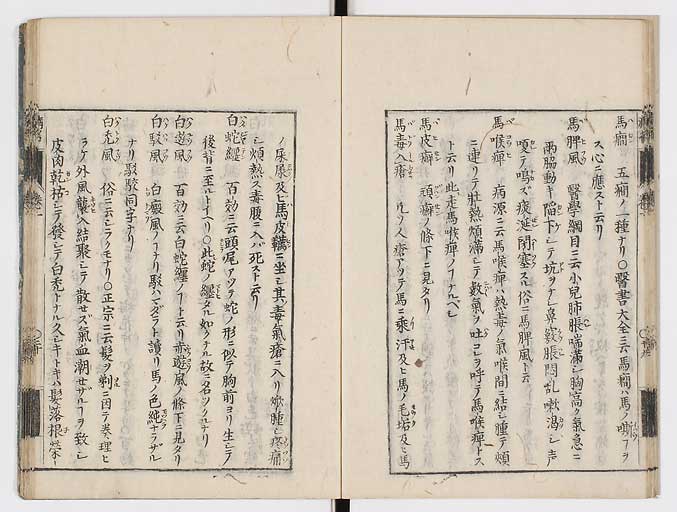 馬癇　五癇ノ一種ナリ○醫書大全ニ云馬癇ハ馬ノ嘶フヲ
ス心ニ應スト云リ
馬脾風　醫學綱目ニ云小兒肺脹喘滿シ胸高ク氣急ニ
兩脇動キ陷下シテ坑ヲナシ鼻竅脹悶亂嗽渴シ声
嗄テ鳴ズ痰涎閉塞ス俗ニ馬脾風ト云
馬喉痺　病源ニ云馬喉痺ハ熱毒ノ氣喉間ニ結ビ腫テ頰
ニ連リテ壯熱煩滿シテ數氣ヲ吐コレヲ呼テ馬喉痺トス
ト云リ此走馬喉痺ノフナルベシ
馬皮癬　頑癬ノ條下ニ見タリ
馬毒入瘡　凡ソ人瘡アツテ馬ニ乘汗及ヒ馬ノ毛垢及ヒ馬
ノ屎尿及ヒ馬皮韉ニ坐シ其ノ毒氣瘡ニ入リ焮腫シ疼痛
シ煩熱ス毒腹ニ入バ死スト云リ
白蛇纏　百効ニ云頭尾アツテ蛇ノ形ニ似テ胸前ヨリ生シテ
後背ニ至ルトイヘリ○此蛇ノ纏タル如クナル故ニ名ツクルナリ
白遊風　百効ニ云白蛇纏ノフト云リ赤遊風ノ條下ニ見タリ
白駁風　白癜風ノフナリ駁ハマダラト讀リ馬ノ色純ナラザル
ナリ駁駮同字ナリ
白禿風　俗ニ云シラクモナリ○正宗ニ云髮ヲ剃ニ因テ腠理ヒ
ラケ外風襲入結聚シテ散セズ氣血潮セザルフヲ致シ
皮肉乾枯シテ發シテ白禿トナル久シキトキハ髮落根